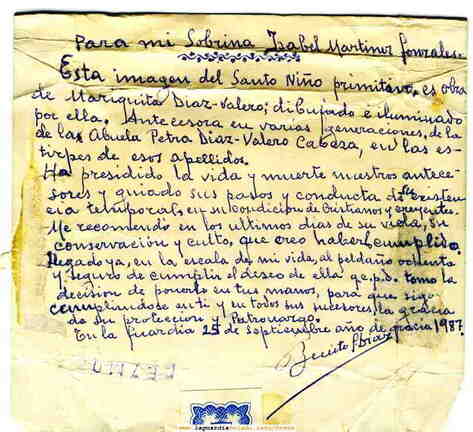 Para mi Sobrina Isabel Martinez Gonzalez.
Esta imagen del Santo Niño primitivo, es obra
de Mariquita Diaz-Valero; dibujado e iluminado
por ella. Antecesora en varias generaciones, de la
de la Abuela Petra Diaz-Valero Cabeza, en las es-
tirpes de esos apellidos.
Ha presidido la vida y muerte nuestros antece-
sores y guiado sus pasos y conducta de existen
cia temporal, en su condición de Cristianos y creyentes.
Me recomendo en los ultimos dias de su vida, su
conservación y culto, que creo haber cumplido.
Llegado ya, en la escala de mi vida, al peldaño ochenta
y seguro de cumplir el deseo de ella q.e.p.d. tomo la
decision de ponerlo en tus manos, para que siga
cumpliendose en ti y en todos sus sucesores, la gracia
de su protección y Patronazgo.
En La Guardia 25 de Septiembre año de gracia 1987.
Benito Diaz
www.laguardiatoledo.